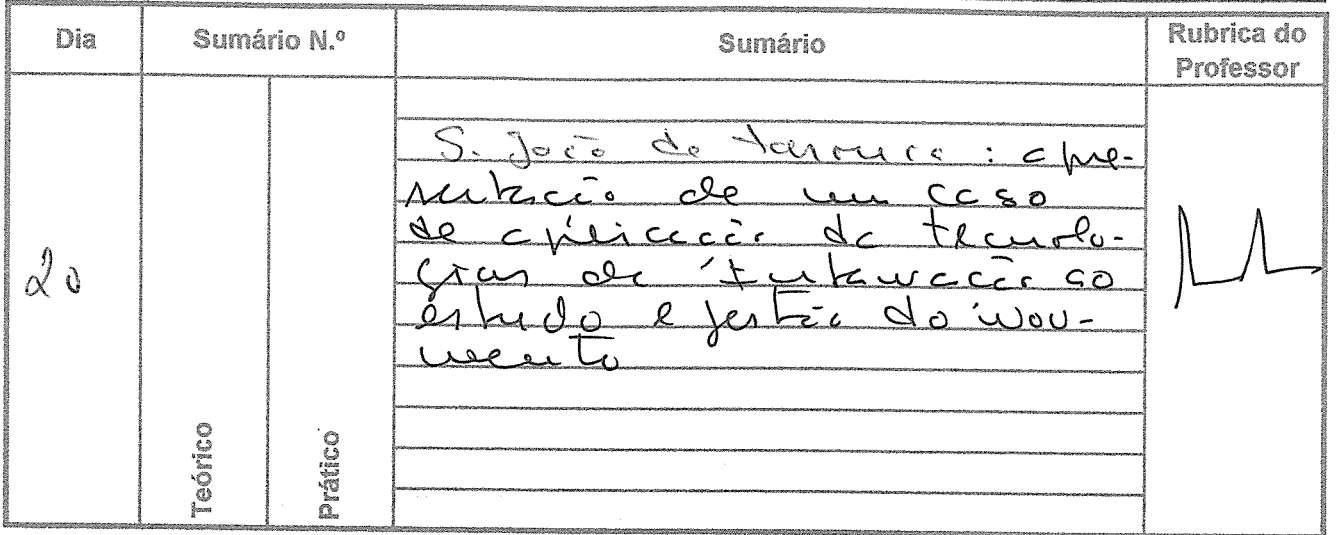 Dia Sumário N.º Sumário Rubrica do Professor
Teórico Prático
20
S. João de Tarouca : apre-
sentação de um caso
de aplicação da tecnolo-
gias de Informação ao
estudo e gestão do monu-
mento